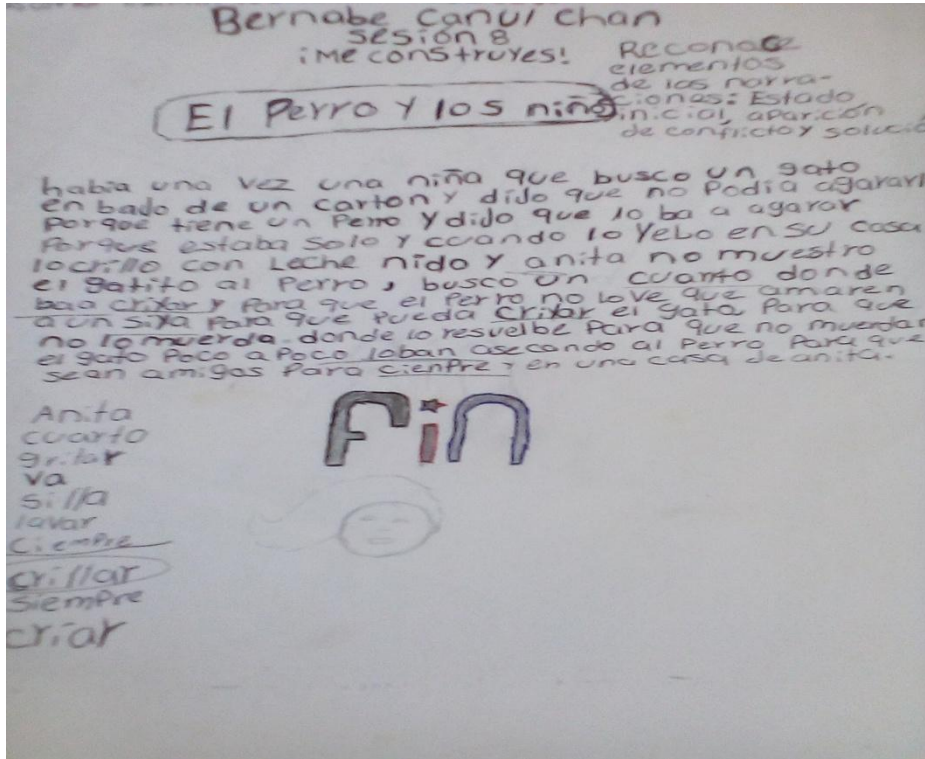 Bernabe Canul chan
sesión 8
¡Me construyes!
Reconoce
elementos
de las narra-
ciones: Estado
inicial, aparición
de conflicto y solució
El Perro y los niños
habia una vez una niña que busco un gato
en bado de un carton y dijo que no Podia agararl
Porque tiene un Perro y dijo que lo ba a agarar
Porque estaba solo y cuando lo yebo en su casa
lo crillo con Leche nido y anita no muestro
el gatito al Perro, busco un cuanto donde
bao crixar y Para que el Perro no love que amaren
a un siya Para que Pueda crixar el gata Para que
no lo muerda. donde lo resuelbe Para que no muerdan
el gato Poco a Poco loban asecando al Perro Para que
sean amigos Para cienpre, en una casa de anita.
Fin
Anita
cuarto
gritar
va
silla
lavar
Ciempre
crillar
siempre
criar